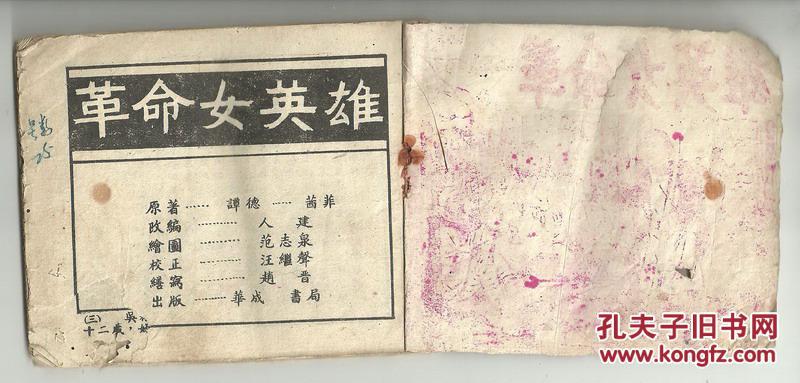 革命女英雄
原著······譚德······茜菲
改編··········人建
繪圖··········范志泉
校正··········汪繼聲
繕寫··········趙晋
出版······華成書局
(三) 吳
十二歲，
革命女英雄
孔夫子旧书网
www.kongfz.com